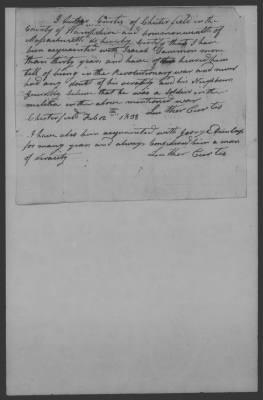 I Luther Curtis of Chesterfield in the
County of Hampshire and Commonwealth of
Massachusetts do hereby certify that I have
been acquainted with Isaac Dammon more
than thirty years and have often heard him
tell of being in the Revolutionary war and never
had any doubt of his veracity and his Neighbors
generally believe that he was a Soldier in the
militia in the above mentioned war
Chesterfield Feb 12th 1838 Luther Curtis
I have also been acquainted with
for many years and always considered him a man
of veracity Luther Curtis